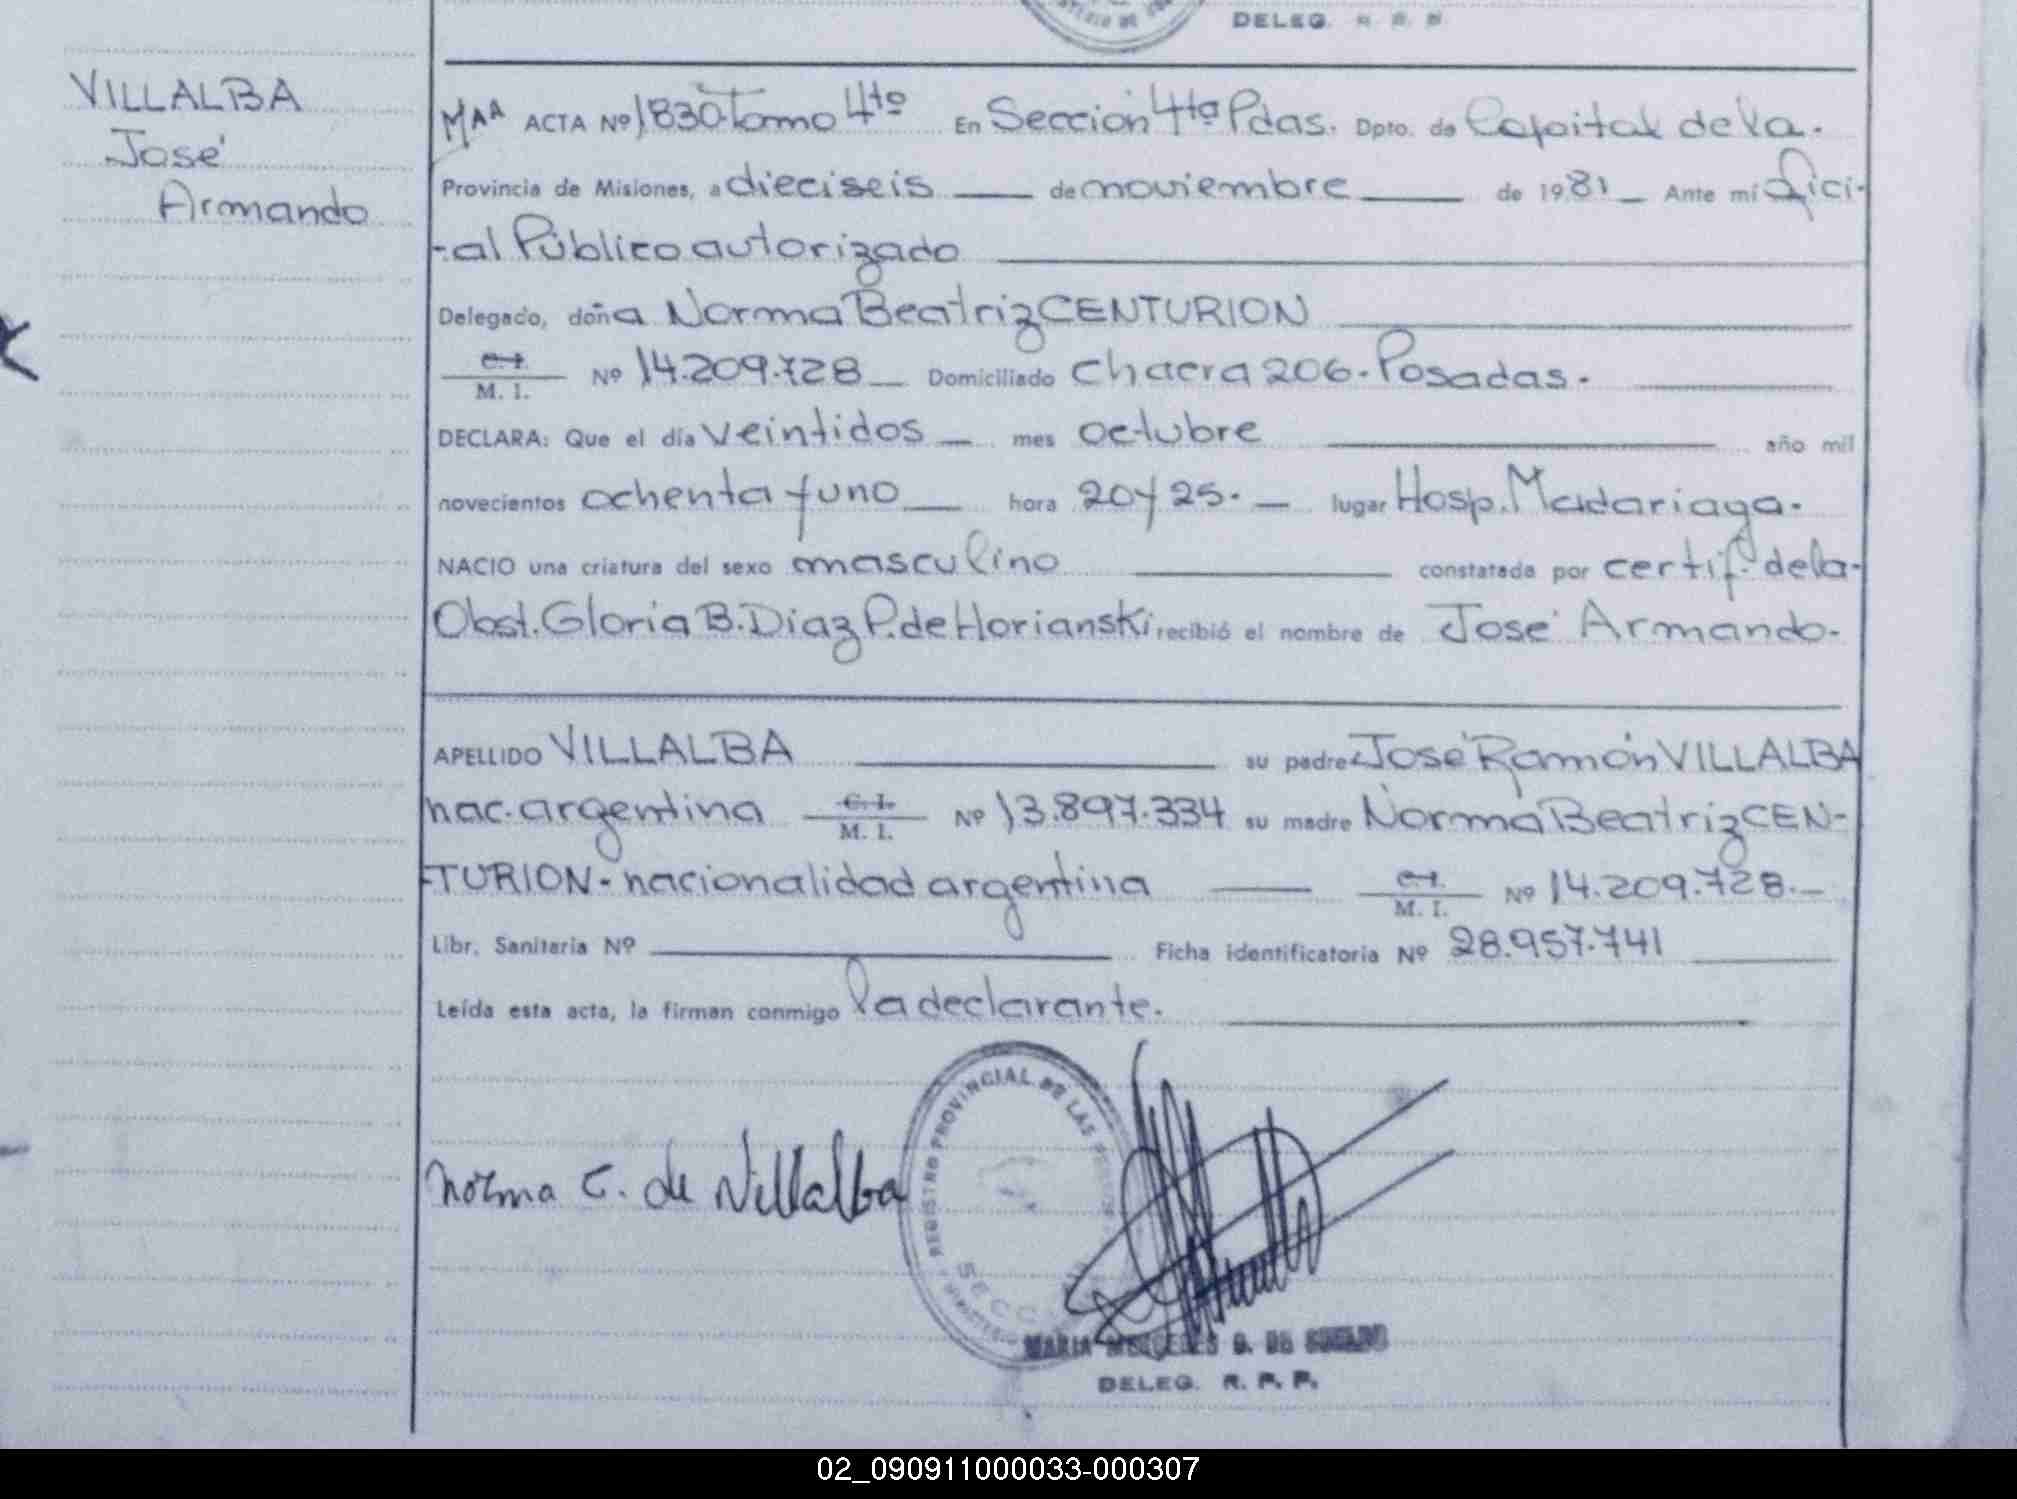 DELEG. R. R. P.
VILLALBA
José
Armando
MAA ACTA Nº 1830 Tomo 4to En Sección 4ta Pdas. Dpto. de Capital de la.
Provincia de Misiones, a dieciseis de noviembre de 1981 Ante mí Ofici-
-al Público autorizado
Delegado, doña Norma Beatriz CENTURION
C.I. M. I. Nº 14.209.728 Domiciliado Chacra 206. Posadas.
DECLARA: Que el día veintidos mes octubre año mil
novecientos ochenta y uno hora 20 y 25. lugar Hosp. Madariaga.
NACIO una criatura del sexo masculino constatada por certif. de la
Obst. Gloria B. Diaz P. de Horianski recibió el nombre de José Armando.
APELLIDO VILLALBA su padre José Ramón VILLALBA
nac. argentina C. I. M. I. Nº 13.897.334 su madre Norma Beatriz CEN-
-TURION - nacionalidad argentina C.I. M. I. Nº 14.209.728.
Libr. Sanitaria Nº Ficha identificatoria Nº 28.957.741
Leída esta acta, la firman conmigo la declarante.
REGISTRO PROVINCIAL DE LAS
SECC
Norma C. de Villalba
MARIA MERCEDES G. DE
DELEG. R. P. P.
02_090911000033-000307